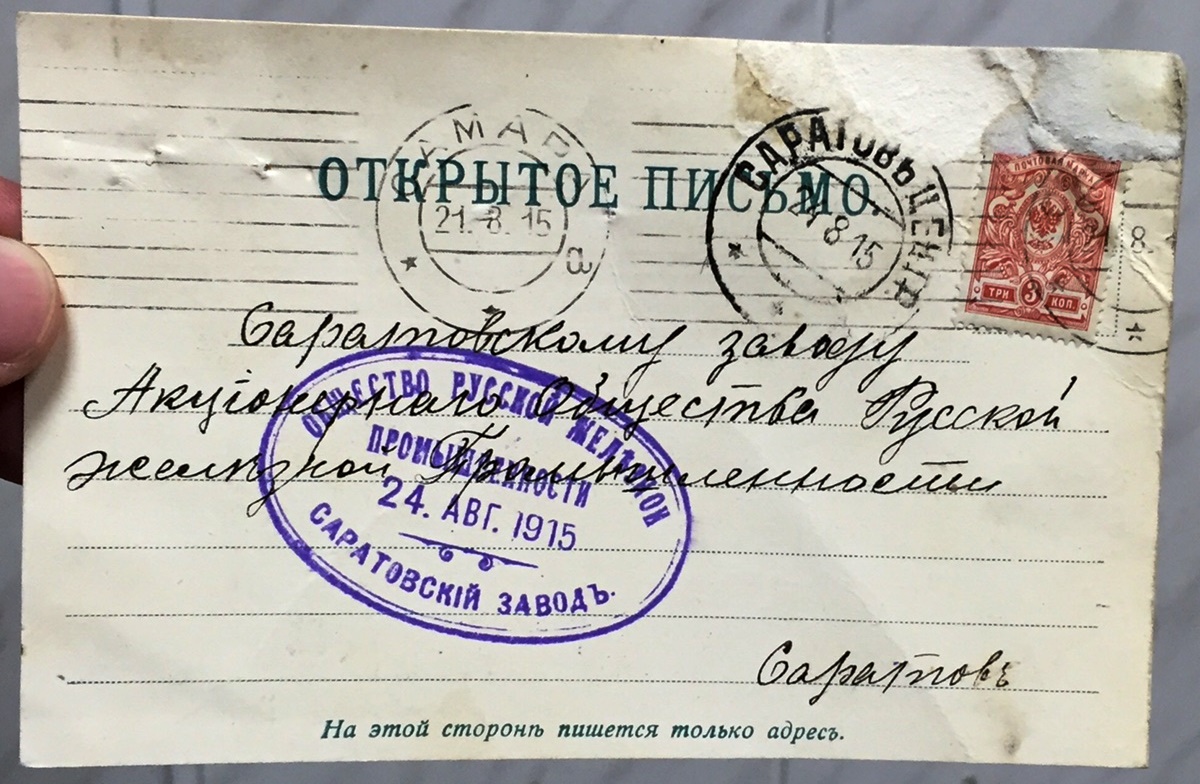 САМАРА
21.-8.15
а
ОТКРЫТОЕ ПИСЬМО.
САРАТОВЪ ЦЕНТР
8 15
ПОЧТОВАЯ МАРКА
ТРИ 3 КОП.
8.
Саратовскому заводу
Акціонернаго Общества Русской
желѣзной Промышленности
ОБЩЕСТВО РУССКОЙ ЖЕЛѢЗНОЙ
ПРОМЫШЛЕННОСТИ
24. АВГ. 1915
САРАТОВСКІЙ ЗАВОДЪ.
Саратовъ
На этой сторонѣ пишется только адресъ.